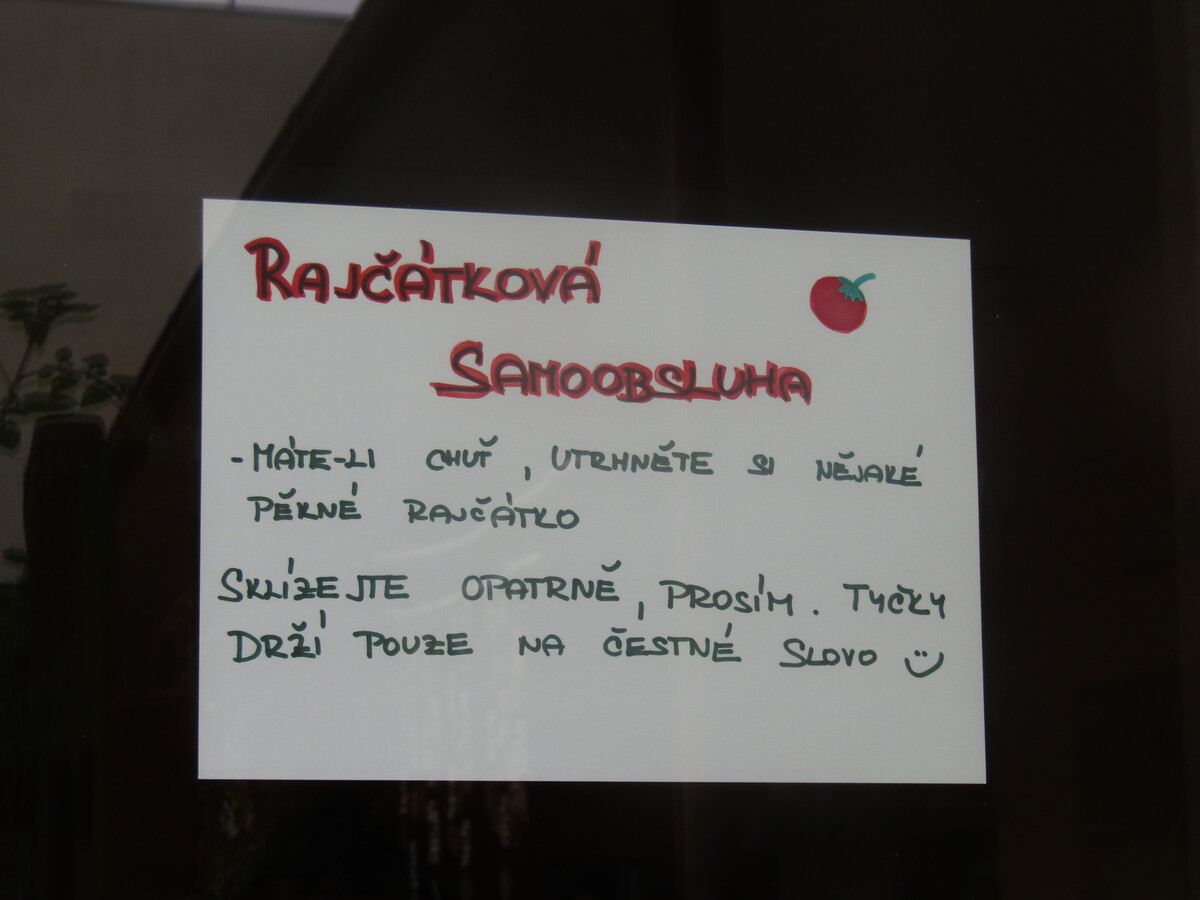 RAJČÁTKOVÁ
SAMOOBSLUHA
- MÁTE-LI CHUŤ, UTRHNĚTE SI NĚJAKÉ
PĚKNÉ RAJČÁTKO
SKLÍZEJTE OPATRNĚ, PROSÍM. TYČKY
DRŽÍ POUZE NA ČESTNÉ SLOVO